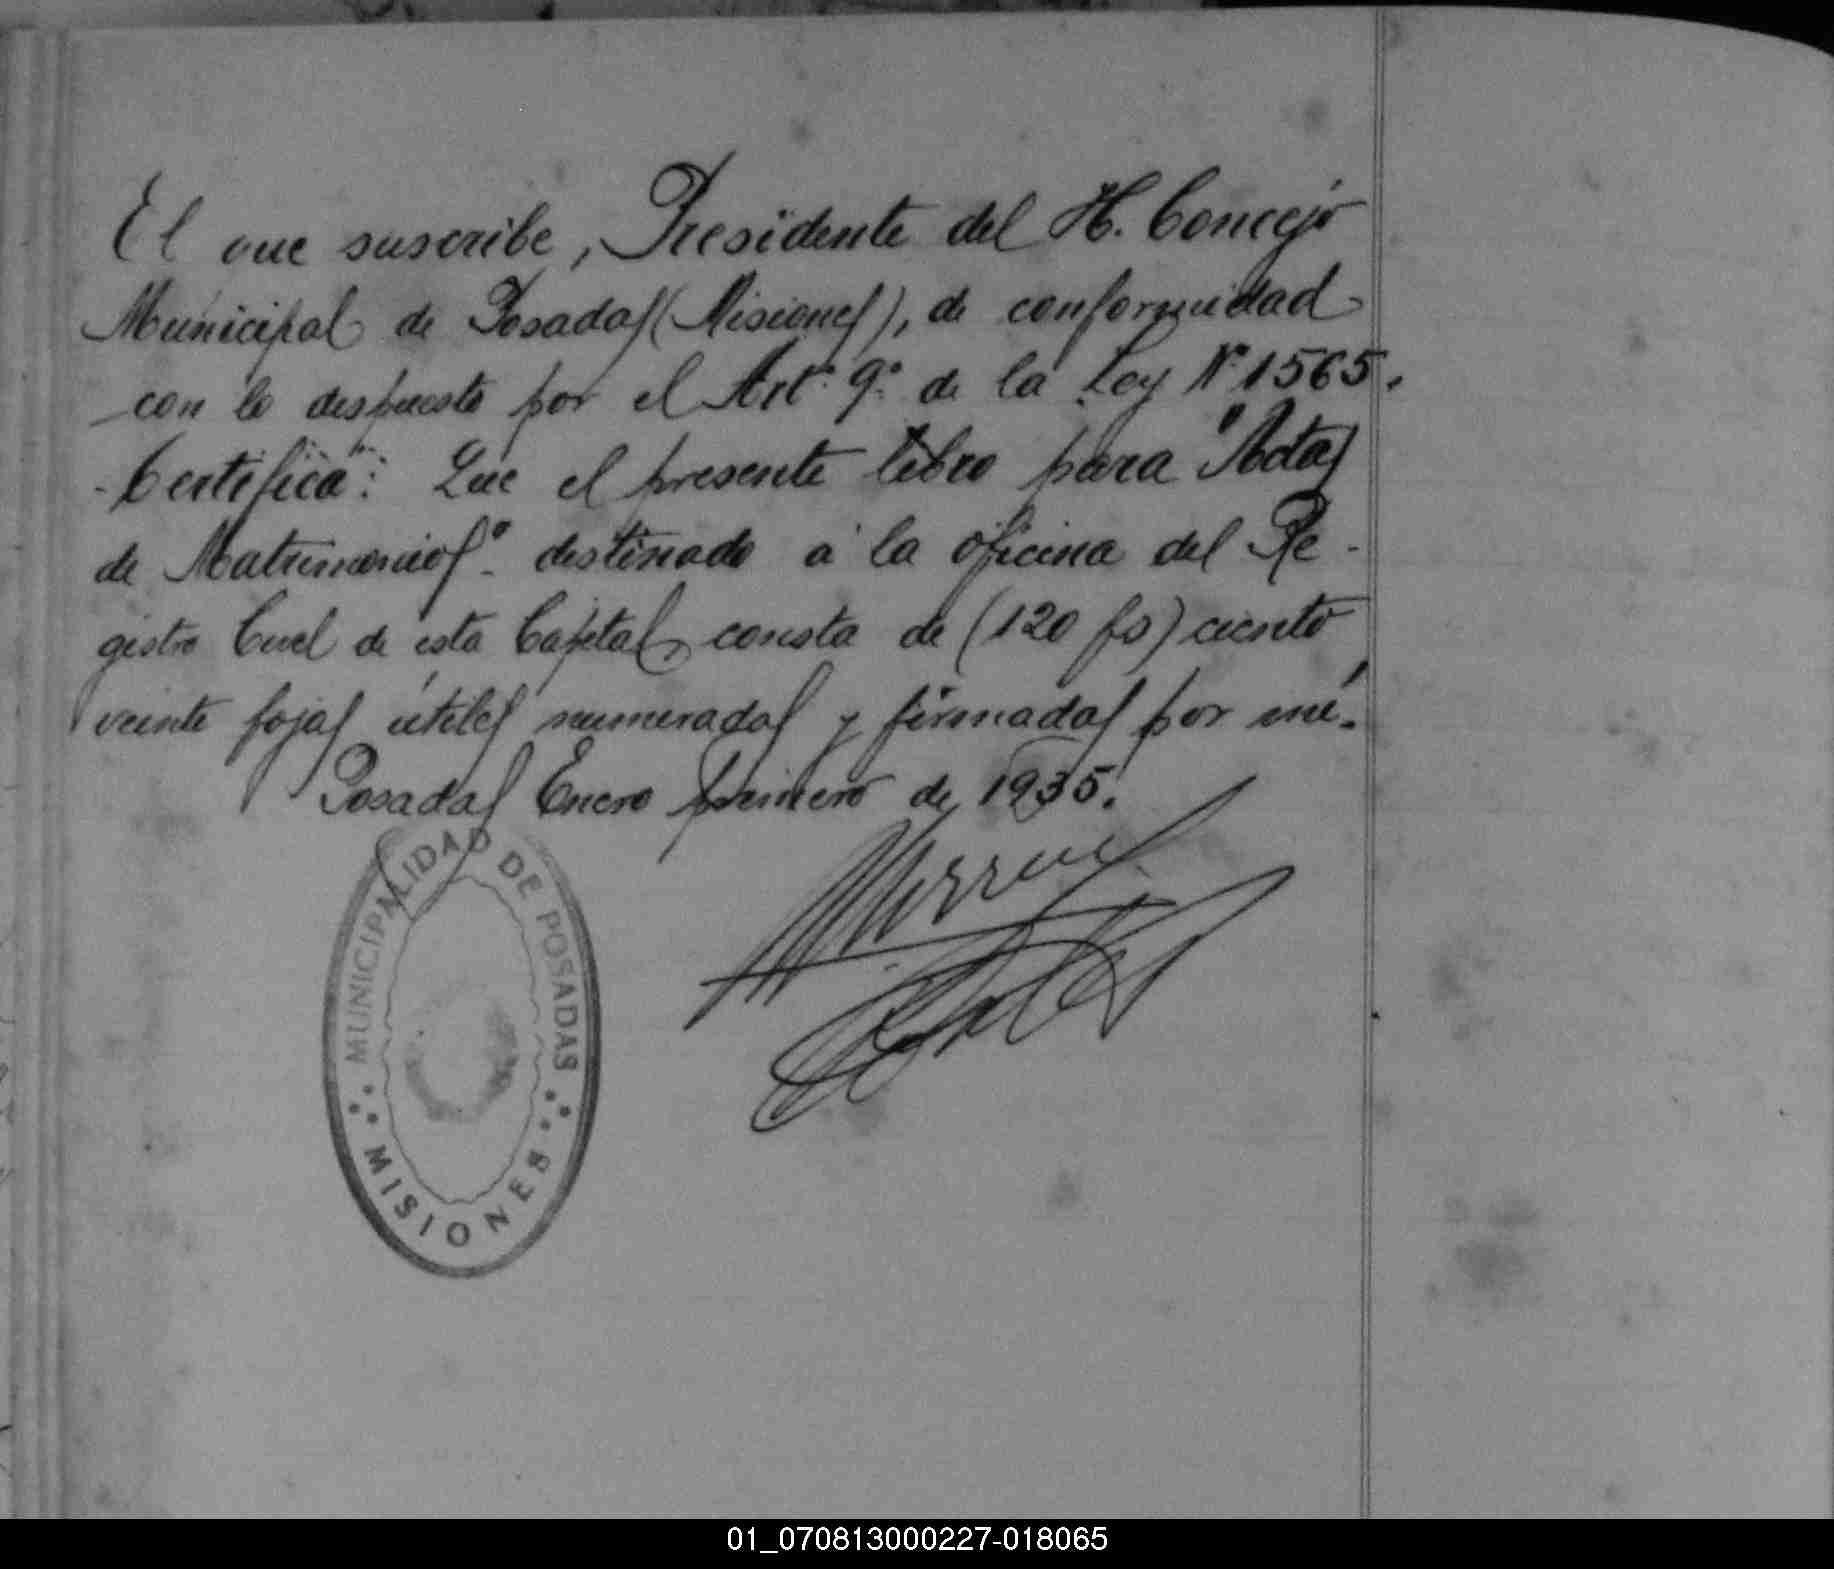 El que suscribe, Presidente del H. Concejo
Municipal de Posadas (Misiones), de conformidad
con lo dispuesto por el Art.º 9.º de la Ley Nº 1565.
- Certifica: Que el presente libro para "Actas
de Matrimonios" destinado á la oficina del Re-
gistro Civil de esta Capital, consta de (120 fs) ciento
veinte fojas útiles numeradas y firmadas por mí.
Posadas Enero primero de 1935.
MUNICIPALIDAD DE POSADAS
MISIONES
01_070813000227-018065